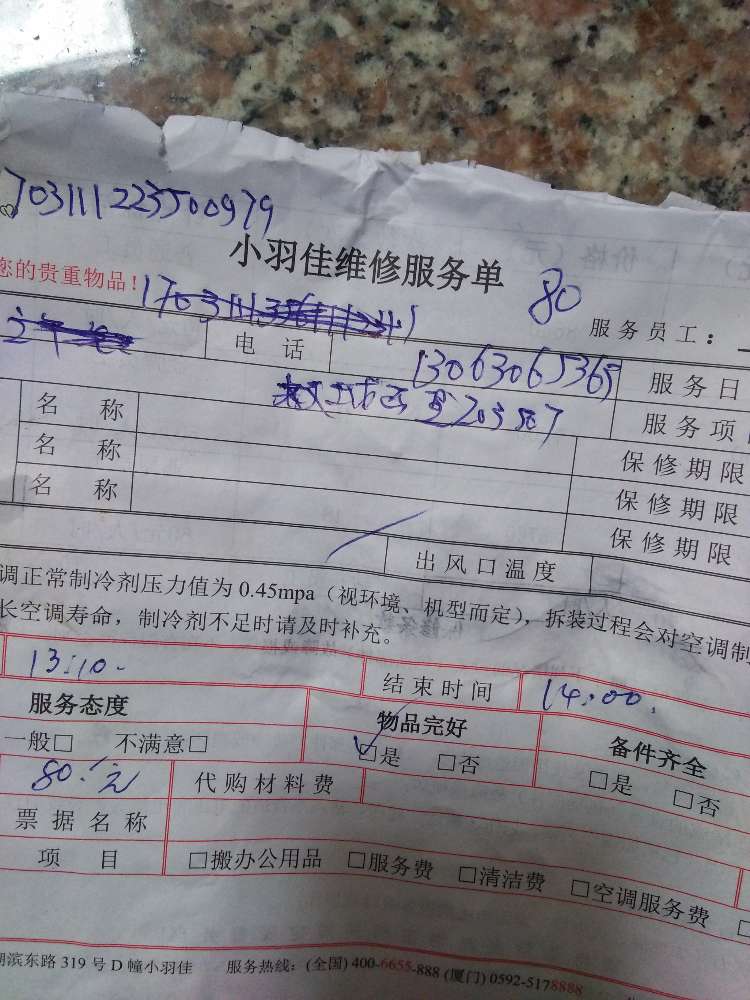 703111223500979
小羽佳维修服务单
您的贵重物品!
80
服务员工：
电 话 13063065365 服务日
名 称 服务项
名 称 保修期限
名 称 保修期限
保修期限
出风口温度
调正常制冷剂压力值为 0.45mpa（视环境、机型而定），拆装过程会对空调制
长空调寿命，制冷剂不足时请及时补充。
13:10. 结束时间 14:00.
服务态度 物品完好 备件齐全
一般□ 不满意□ □是 □否 □是 □否
80.元 代购材料费
票据名称
项 目 □搬办公用品 □服务费 □清洁费 □空调服务费
湖滨东路 319 号 D 幢小羽佳 服务热线：(全国) 400-6655-888 (厦门) 0592-5178888